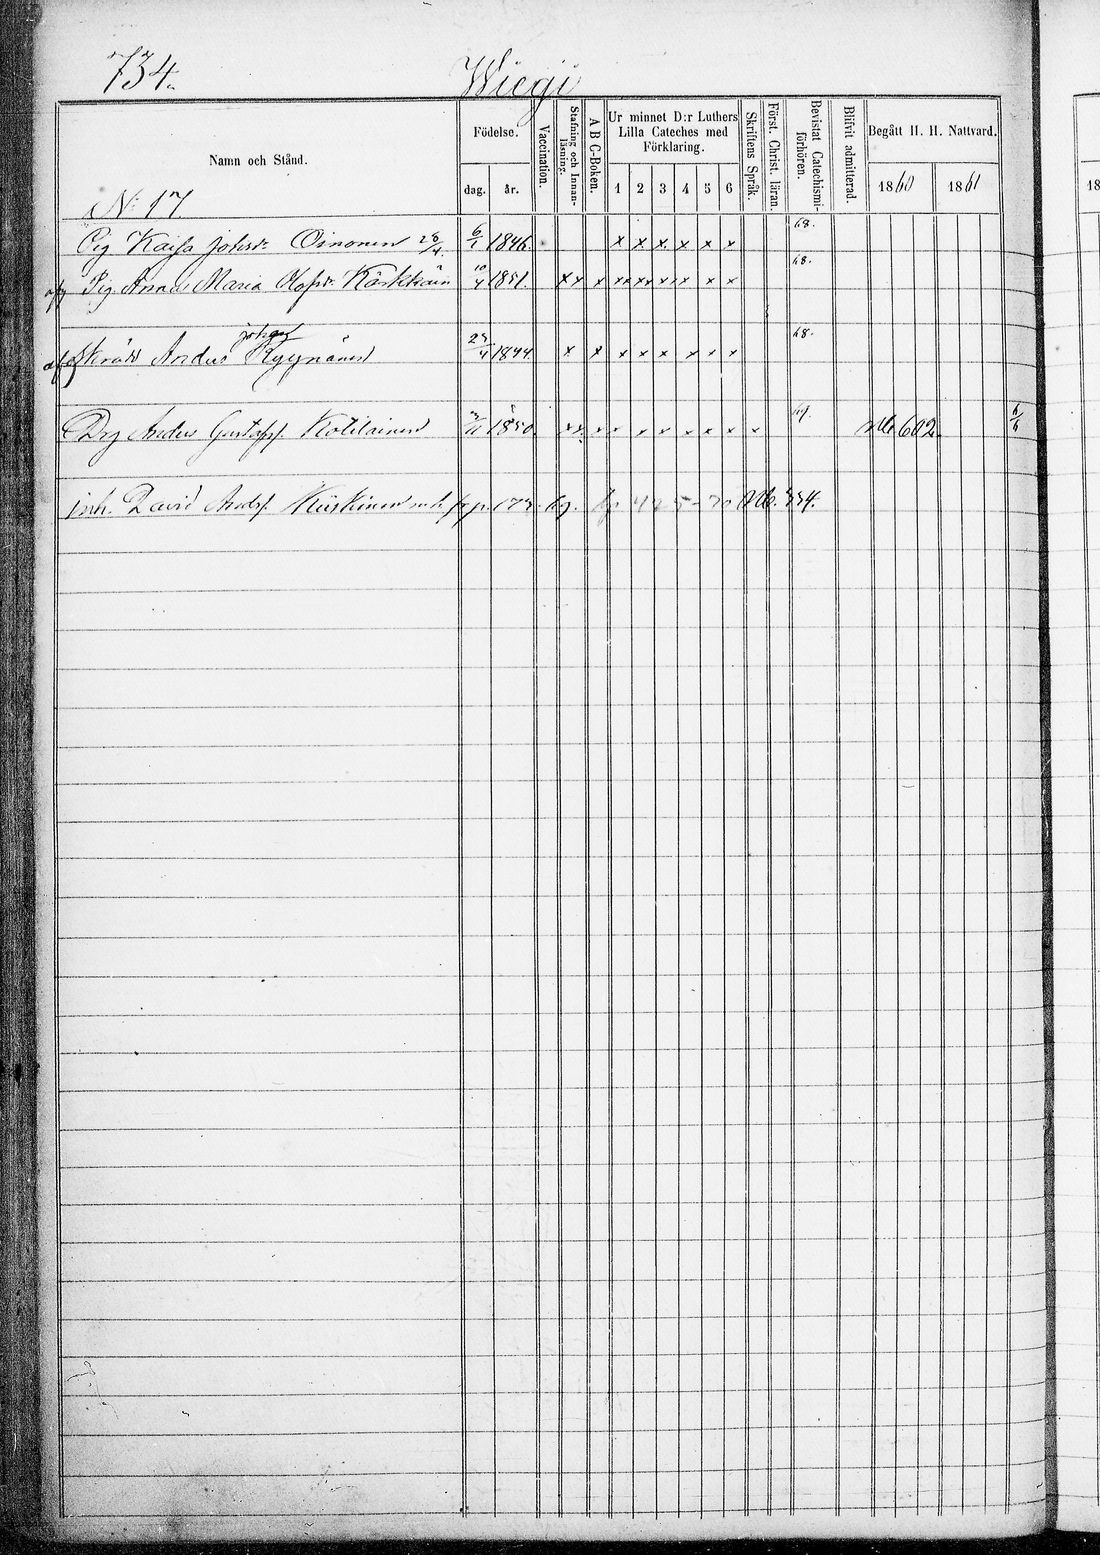 734.
Wiegi
Namn och Stånd.
Födelse.
dag. år.
Vaccination.
Stafning och Innanläsning.
A B C-Boken.
Ur minnet D:r Luthers Lilla Cateches med Förklaring.
1 2 3 4 5 6
Skriftens Språk.
Först. Christ. läran.
Bevistat Catechismiförhören.
Blifvit admitterad.
Begått H. H. Nattvard.
1860 1861
N: 17
Pig Kaisa Johsdr Oinonen 28/4. 6/1 1846. x x x x x x 68.
Pig. Anna Maria Olofsdr. Kärkkäin 10/4 1851. x x x xx xx xx x x x 68.
Johan
Anders Ryynänen 1844 x x x x x x x x 68.
Drg Anders Gustafss. Kotilainen 1850. x x x x x x x x x x x 602.
inh. David Andss. Kiiskinen
18